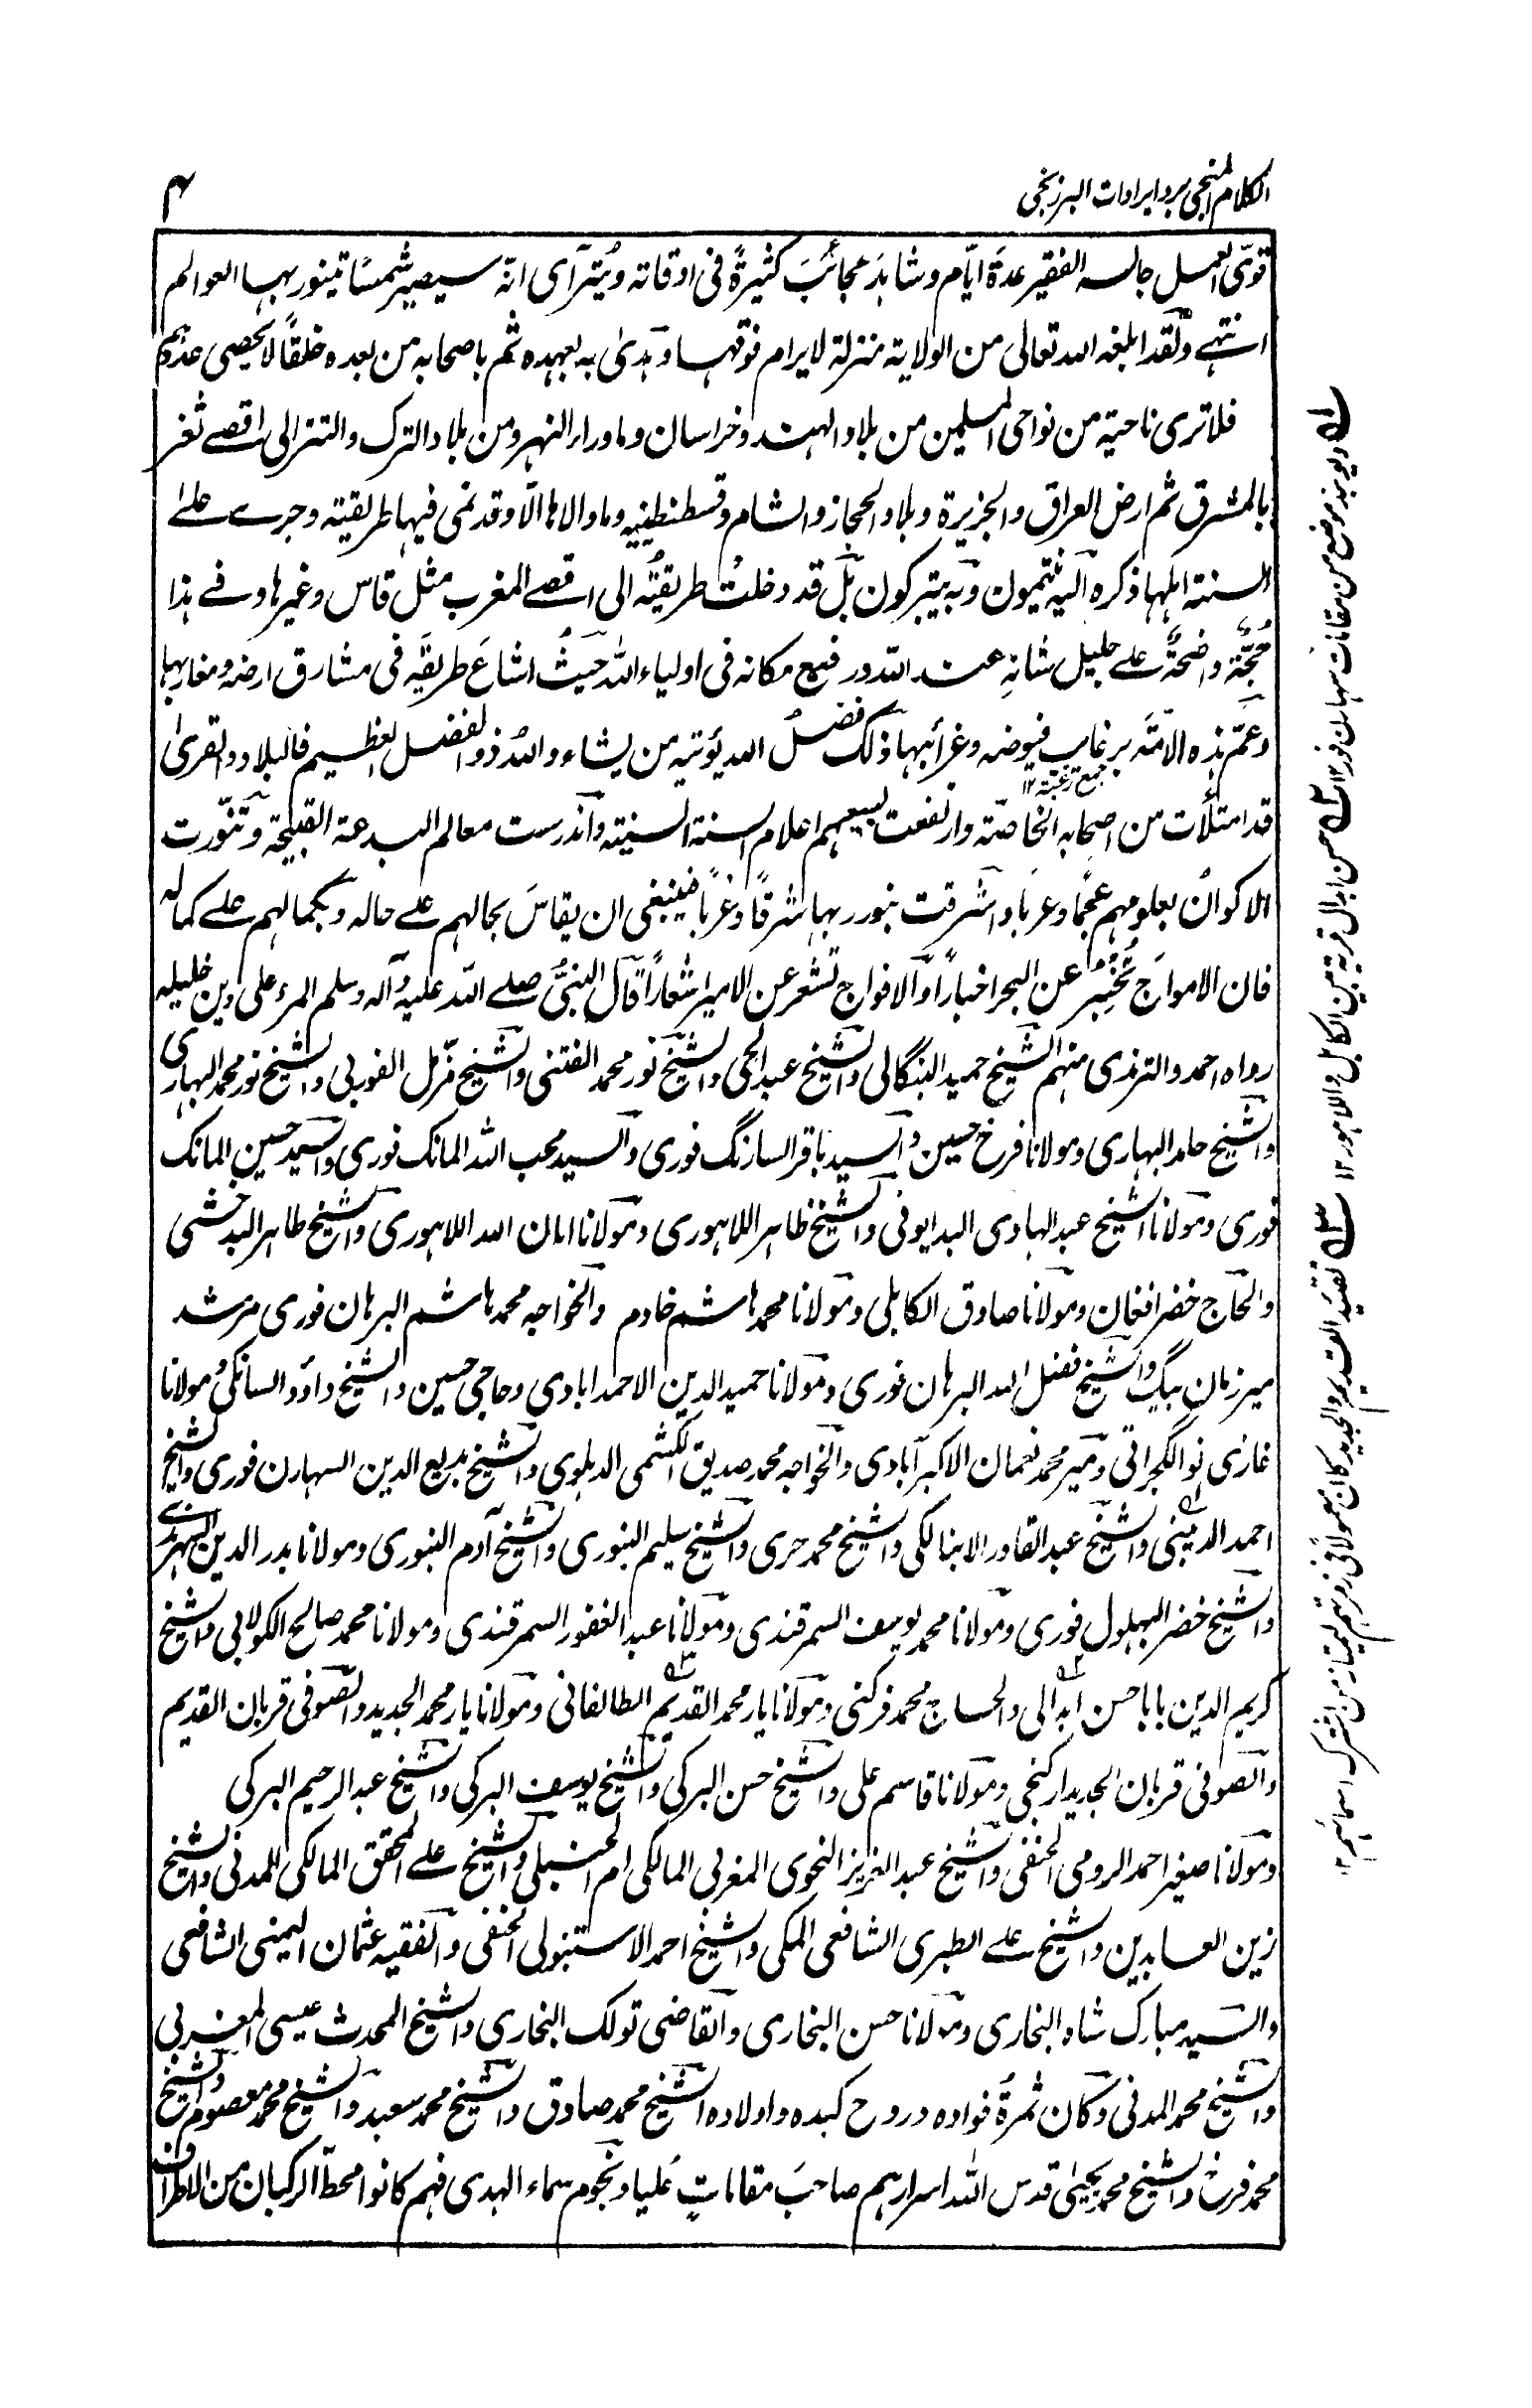 الكلام المنجى برد ايرادات البرزنجى
۴
قوىّ العمل جالسه الفقير عدة ايّام وشاهدَ عجائبَ كثيرةً فى اوقاته ويُترآى انّه سيصير شمسًا تينور بها العوالم
انتهے ولقد ابلغه الله تعالى من الولاية منزلة لا يرام فوقها وهدىٰ به بعهده ثم باصحابه من بعده خلقًا لا يحصى عددهم
فلا ترى ناحية من نواحى المسلمين من بلاد الهند وخراسان وماوراء النهر ومن بلاد الترك والتتر الى اقصے ثغر
بالمشرق ثم ارض العراق والجزيرة وبلاد الحجاز والشام وقسطنطينيه وما والاها الّا وقد نمى فيها طريقته وجرے علےٰ
السنة اهلها ذكره اليه ينتمون وبه يتبركون بل قد دخلت طريقتُه الى اقصے المغرب مثل فاس وغيرها وفے هذا
حُجّة واضحةٌ علے جليل شانهِ عند الله ورفيع مكانه فى اولياء الله حيثُ اشاعَ طريقَه فى مشارق ارضه ومغاربها
وعمّ هذه الامّة برغاب فيوضه وغرائبها ذلك فضلُ الله يؤتيه من يشاء والله ذو الفضل العظيم فالبلاد والقرىٰ
جمع رغبة ۱۲
قد امتلأت من اصحابه الخاصّة وارتفعت بسعيهم اعلام السنة السنية واندرست معالم البدعة القبيحة وتنوّرت
الاكوانُ بعلومهم عجمًا وعربًا واشرقت بنور ربها شرقًا وغربًا فينبغى ان يقاسَ بحالهم علے حاله وبكمالهم علے كماله
فان الامواجَ تُخْبِرُ عن البحر اخبارًا والافواج تشعر عن الامير اشعارًا قال النبىُّ صلے الله عليه وآله وسلم المرء على دين خليله
رواه احمد والترمذى منهم الشيخ حميد البنگالى والشيخ عبد الحى والشيخ نور محمد الفتنى والشيخ مزّمل الفوربى والشيخ نور محمد البهارى
والشيخ حامد البهارى ومولانا فرخ حسين والسيد باقر السارنگ فورى والسيد محب الله المانك فورى والسيد حسين المانك
فورى ومولانا الشيخ عبد الهادى البدايونى والشيخ طاهر اللاهورى ومولانا امان الله اللاهورى والشيخ طاهر البدخشى
والحاج خضر افغان ومولانا صادق الكابلى ومولانا محمد هاشم خادم والخواجه محمد هاشم البرهان فورى مرشد
مير زمان بيگ والشيخ فضل الله البرهان فورى ومولانا حميد الدين الاحمدابادى وحاجى حسين والشيخ داؤد السانكى ومولانا
غازى نو الگجراتى ومير محمد نعمان الاكبرآبادى والخواجه محمد صديق الكشمى الدهلوى والشيخ بديع الدين السهارن فورى والشيخ
احمد الديبنى والشيخ عبد القادر الابنالكى والشيخ محمد حرى والشيخ سليم البنورى والشيخ آدم البنورى ومولانا بدر الدين السهرندے
والشيخ خضر البهلول فورى ومولانا محمد يوسف السمرقندى ومولانا عبد الغفور السمرقندى ومولانا محمد صالح الكولابى والشيخ
كريم الدين بابا حسن ابدالى والحاج محمد فركنى ومولانا يار محمد القديم الطالقانى ومولانا يار محمد الجديد والصوفى قربان القديم
والصوفى قربان الجديد اركنجى ومولانا قاسم على والشيخ حسن البركى والشيخ يوسف البركى والشيخ عبد الرحيم البركى
ومولانا صغير احمد الرومى الحنفى والشيخ عبد العزيز النحوى المغربى المالكى ام الحنبلى والشيخ علے المحقق المالكى المدنى والشيخ
زين العابدين والشيخ علے الطبرى الشافعى المكى والشيخ احمد الاستنبولى الحنفى والفقيه عثمان اليمنى الشافعى
والسيد مبارك شاه البخارى ومولانا حسن البخارى والقاضى تولك البخارى والشيخ المحدث عيسى المغربى
والشيخ محمد المدنى وكان ثمرةُ فواده وروح كبده واولاده الشيخ محمد صادق والشيخ محمد سعيد والشيخ محمد معصوم والشيخ
محمد فرخ والشيخ محمد يحيىٰ قدس الله اسرارهم صاحبَ مقاماتٍ عَليا ونجوم سماء الهدى فهم كانوا محطّ الركبان من الاطراف
۱ ديوبند موضع من مقامات سهارن فور ۱۲ ۲ حسن ابدال قرية بين الكابل واللاهور ۱۲ ۳ تقييد القديم والجديد كان معمولًا فى زمرتهم ليمتاز من اشترك اسمائهم ۱۲